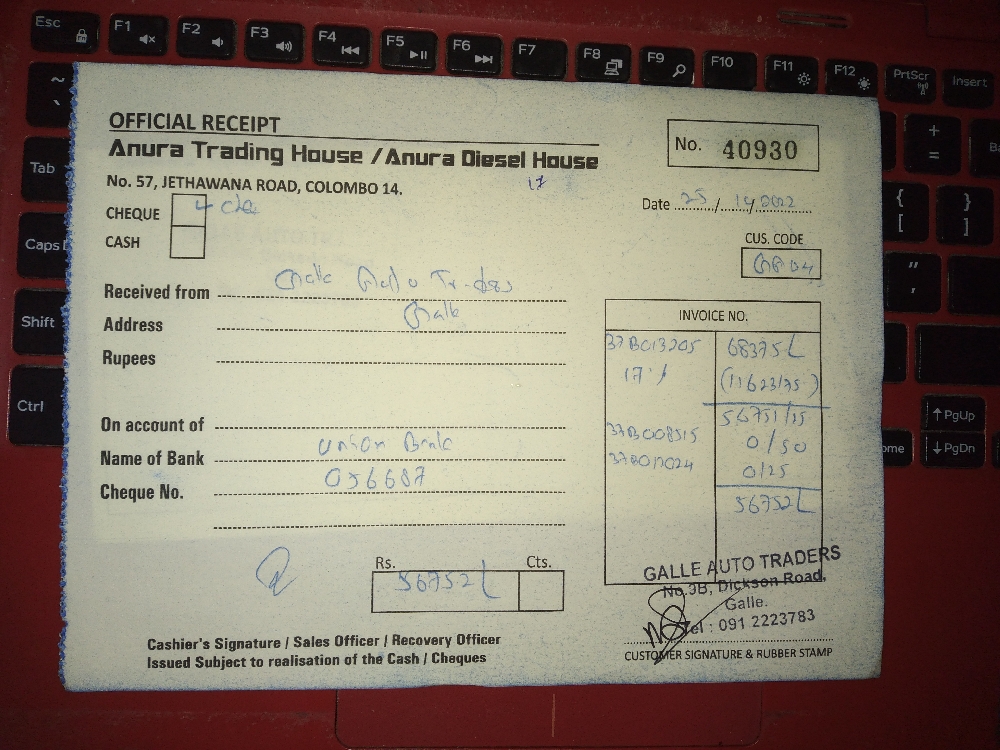 Esc F1 F2 F3 F4 F5 F6 F7 F8 F9 F10 F11 F12 PrtScr Insert
~
`
Tab
Caps
Shift
Ctrl
+
=
{
[
}
]
"
'
PgUp
ome PgDn
OFFICIAL RECEIPT
Anura Trading House / Anura Diesel House
No. 57, JETHAWANA ROAD, COLOMBO 14.
17
No. 40930
CHEQUE
CASH
Date 25/10/2022
CUS. CODE
Received from Galle Auto Traders
Address Galle
Rupees
On account of
Name of Bank Union Bank
Cheque No. 056687
INVOICE NO.
37B013205 68375
17% (11623/75)
56751/25
37B008515 0/50
0/25
56752
Rs. Cts.
56752
GALLE AUTO TRADERS
No.3B, Dickson Road,
Galle.
Tel : 091 2223783
Cashier's Signature / Sales Officer / Recovery Officer
Issued Subject to realisation of the Cash / Cheques
CUSTOMER SIGNATURE & RUBBER STAMP